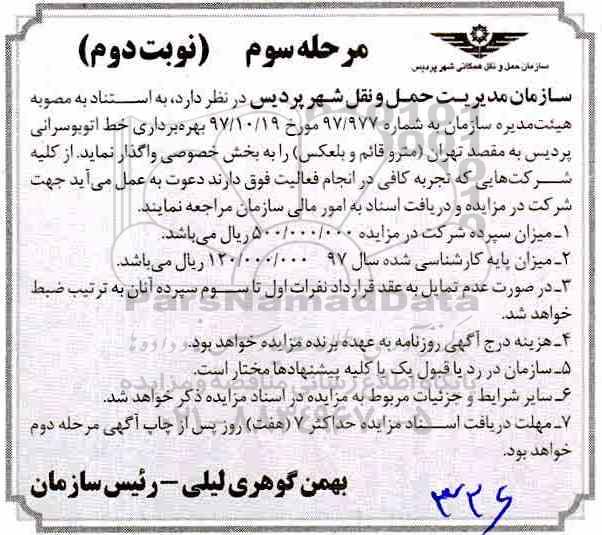 سازمان حمل و نقل همگانی شهر پردیس
مرحله سوم (نوبت دوم)
سازمان مدیریت حمل و نقل شهر پردیس در نظر دارد، به استناد به مصوبه
هیئت‌مدیره سازمان به شماره ۹۷/۹۷۷ مورخ ۹۷/۱۰/۱۹ بهره‌برداری خط اتوبوسرانی
پردیس به مقصد تهران (مترو قائم و بلعکس) را به بخش خصوصی واگذار نماید. از کلیه
شرکت‌هایی که تجربه کافی در انجام فعالیت فوق دارند دعوت به عمل می‌آید جهت
شرکت در مزایده و دریافت اسناد به امور مالی سازمان مراجعه نمایند.
۱ـ میزان سپرده شرکت در مزایده ۵۰۰/۰۰۰/۰۰۰ ریال می‌باشد.
۲ـ میزان پایه کارشناسی شده سال ۹۷ ۱۲۰/۰۰۰/۰۰۰ ریال می‌باشد.
۳ـ در صورت عدم تمایل به عقد قرارداد نفرات اول تا سوم سپرده آنان به ترتیب ضبط
خواهد شد.
۴ـ هزینه درج آگهی روزنامه به عهده برنده مزایده خواهد بود.
۵ـ سازمان در رد یا قبول یک یا کلیه پیشنهادها مختار است.
۶ـ سایر شرایط و جزئیات مربوط به مزایده در اسناد مزایده ذکر خواهد شد.
۷ـ مهلت دریافت اسناد مزایده حداکثر ۷ (هفت) روز پس از چاپ آگهی مرحله دوم
خواهد بود.
بهمن گوهری لیلی – رئیس سازمان
ParsNamadData
پایگاه اطلاع رسانی مناقصه و مزایده